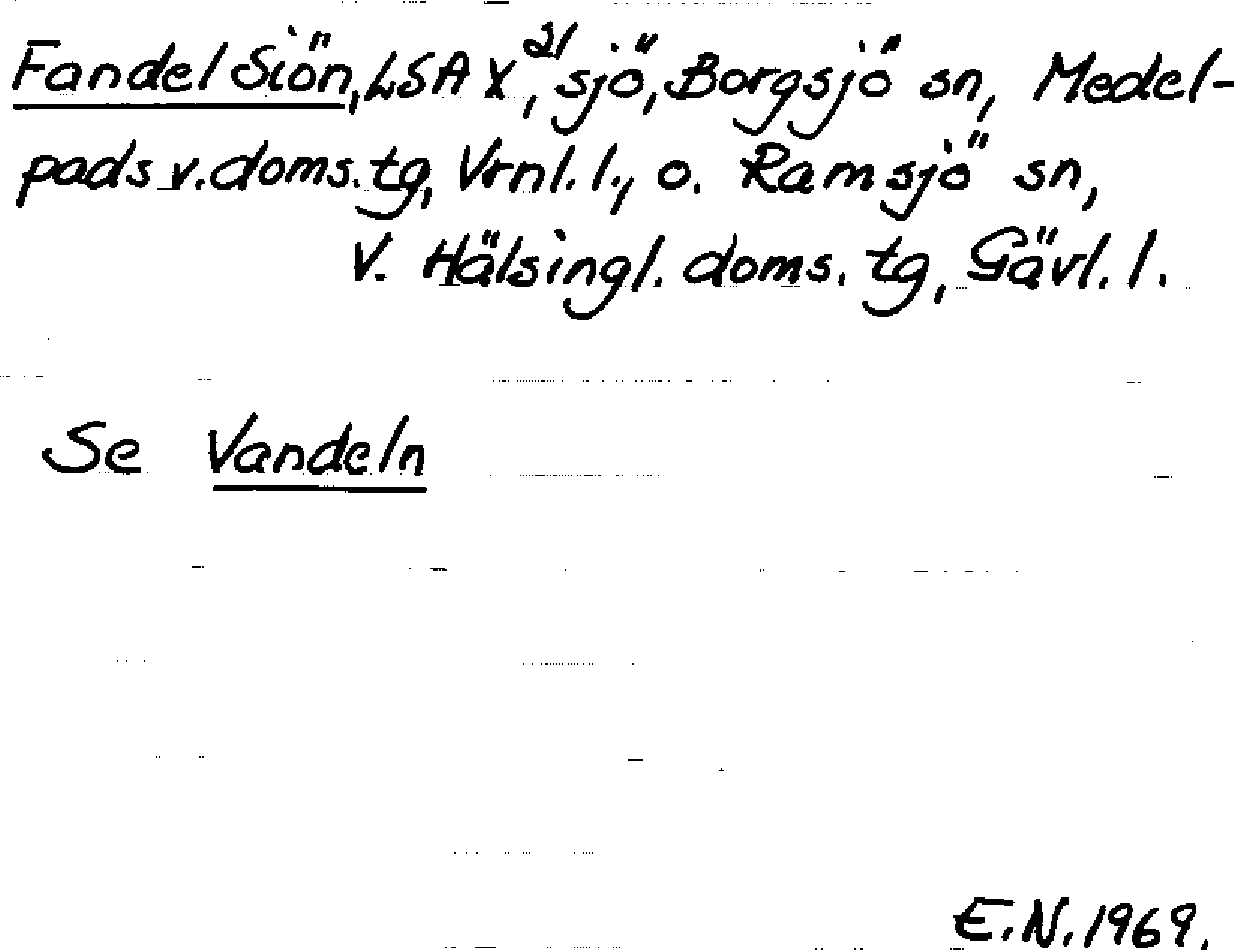 Fandel Siön, LSA X²⁾, sjö, Borgsjö sn, Medel-
pads v. doms. tg, Vrnl. l., o. Ramsjö sn,
V. Hälsingl. doms. tg, Gävl. l.
Se Vandeln
E.N. 1969.